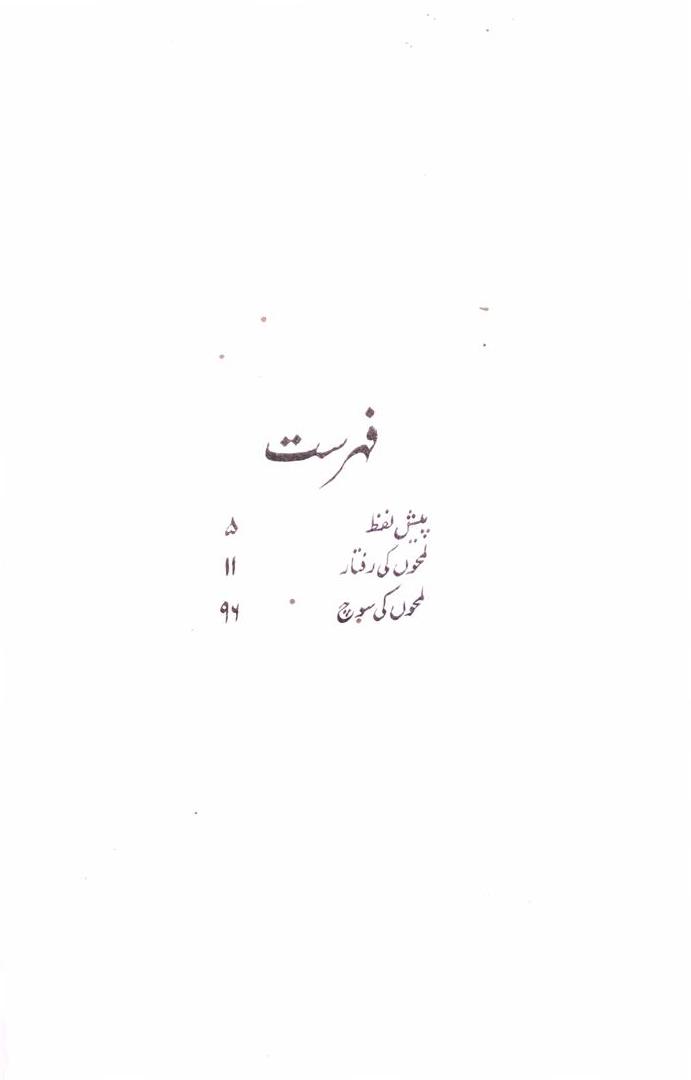 فہرست
پیش لفظ ۵
لمحوں کی رفتار ۱۱
لمحوں کی سوچ ۹۶